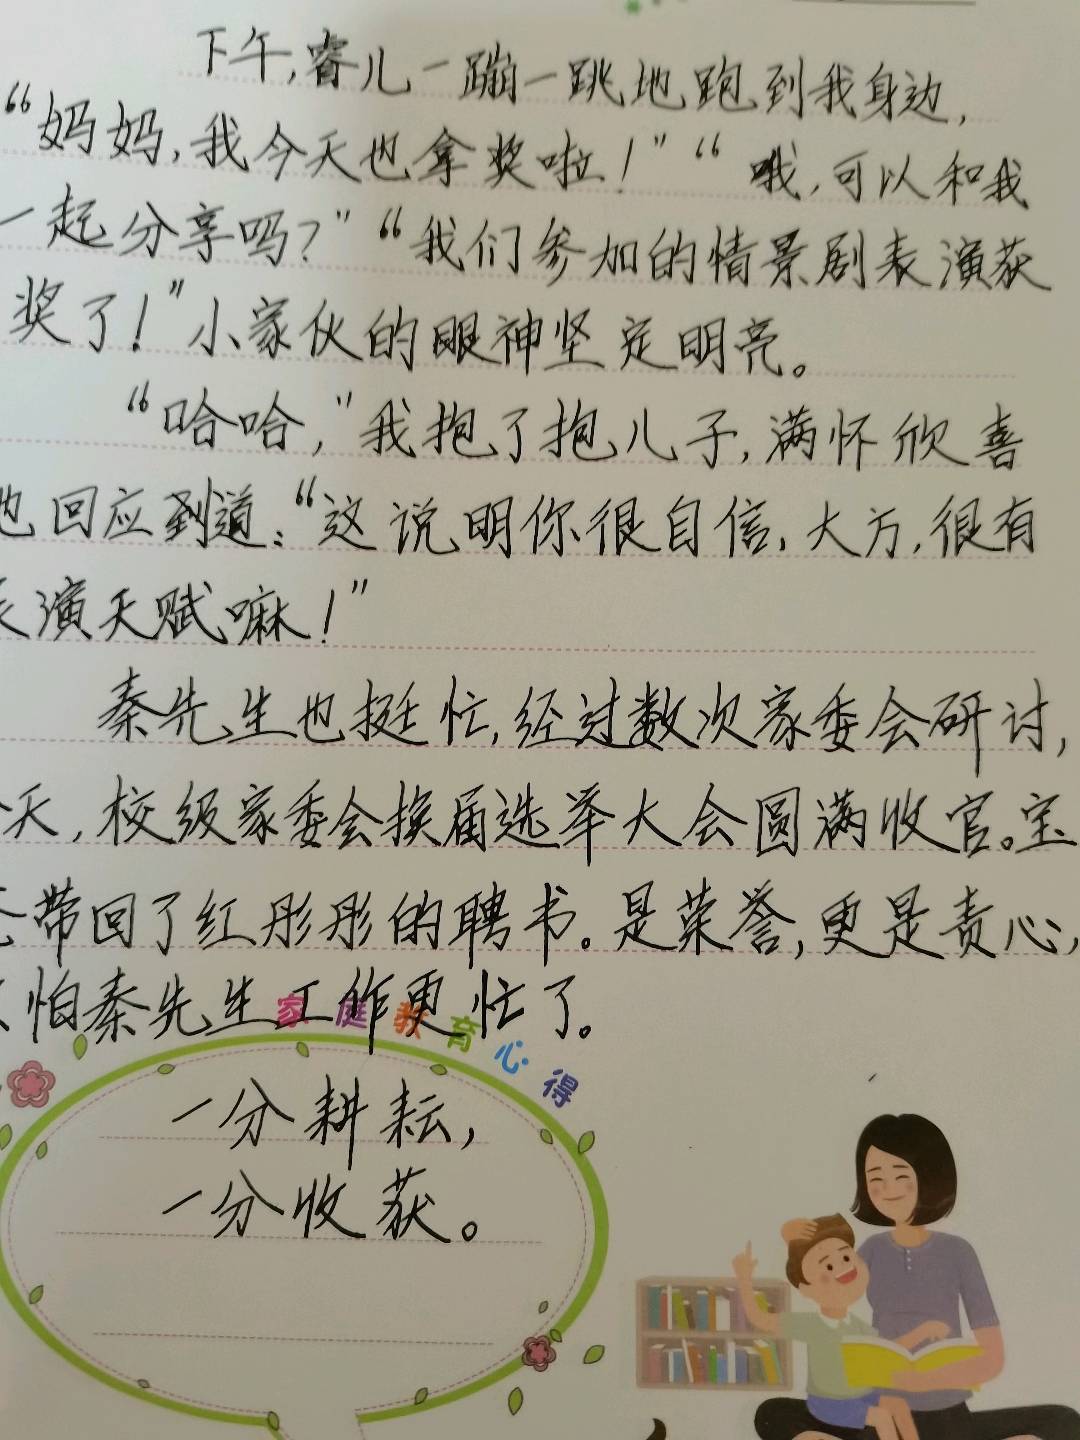 下午,睿儿一蹦一跳地跑到我身边,
“妈妈,我今天也拿奖啦!”“哦,可以和我
一起分享吗?”“我们参加的情景剧表演获
奖了!”小家伙的眼神坚定明亮。
“哈哈,”我抱了抱儿子,满怀欣喜
地回应到道:“这说明你很自信,大方,很有
表演天赋嘛!”
秦先生也挺忙,经过数次家委会研讨,
今天,校级家委会换届选举大会圆满收官。宝
带回了红彤彤的聘书。是荣誉,更是责心,
怕秦先生工作更忙了。
家庭教育心得
一分耕耘,
一分收获。